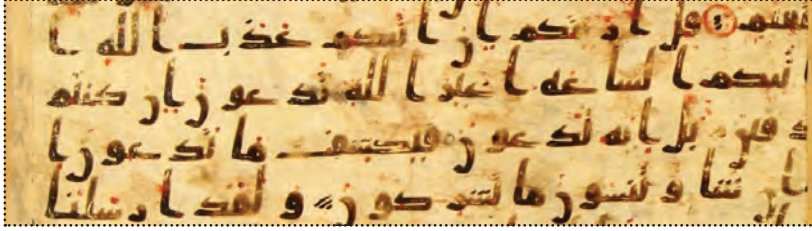 قل اريتكم ان اتيكم عذب الله ا
اتتكم الساعه اغير الله تدعون ان كنتم
دقين بل اياه تدعون فيكشف ما تدعون ا
ان شا و تنسون ما تشركون و لقد ارسلنا